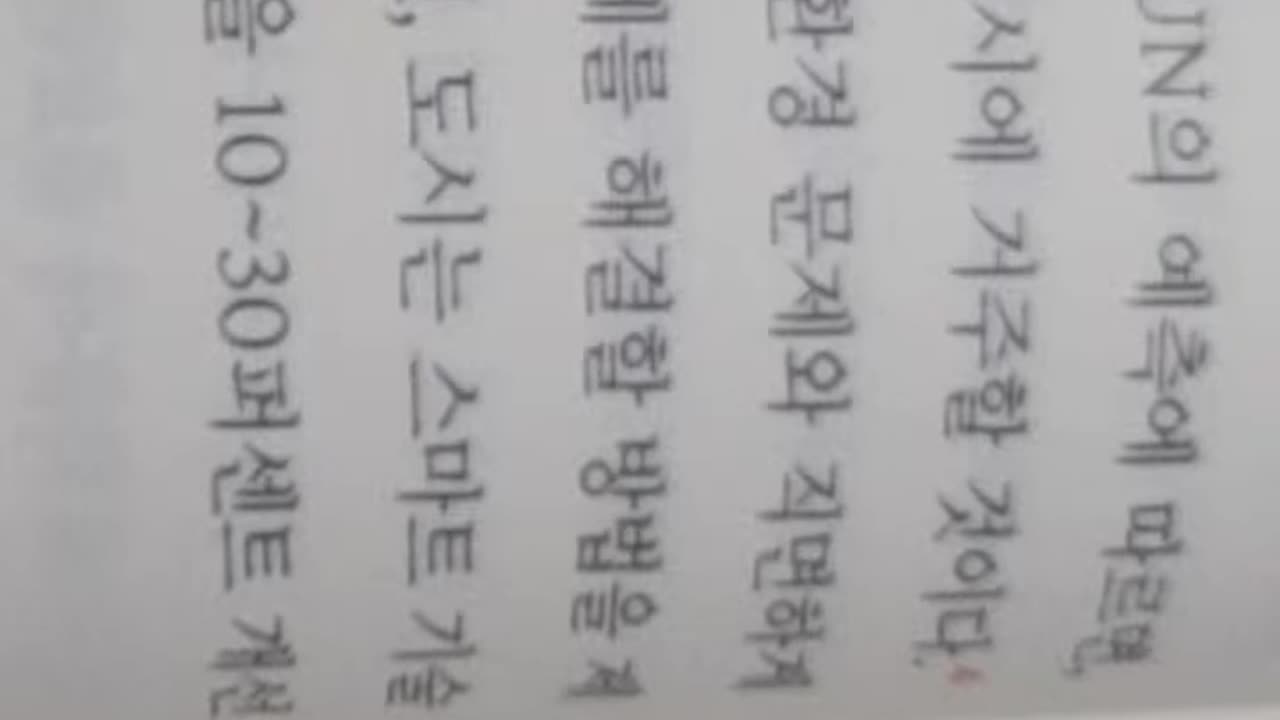 UN의 예측에 따르면,
시에 거주할 것이다.⁴
환경 문제와 직면하게
제를 해결할 방법을 제
, 도시는 스마트 기술
을 10~30퍼센트 개선